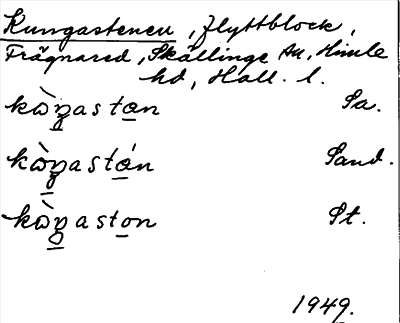 Kungastenen, flyttblock,
Frägnared, Skällinge sn, Himle
hd, Hall. l.
kὼŋastan Sa.
kὼŋastán Sand.
kὼŋaston St.
1949.